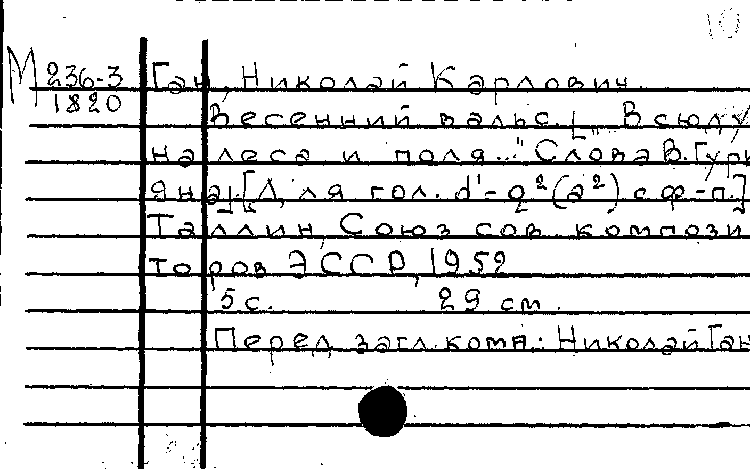 10
М 236-3
1820
Ган, Николай Карлович.
Весенний вальс. [„Всюду
на леса и поля..." Слова В. Гури
яна]. [Для гол. d¹-g²(a²) с ф-п.]
Таллин, Союз сов. компози
торов ЭССР, 1952
5 с. 29 см.
Перед загл. комп.: Николай Ган